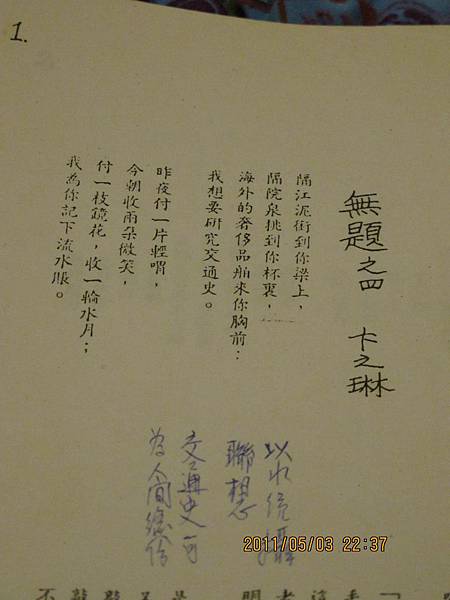 1.
無題之四 卞之琳
隔江泥銜到你梁上,
隔院泉挑到你杯裏,
海外的奢侈品舶來你胸前:
我想要研究交通史。
昨夜付一片輕喟,
今朝收兩朵微笑,
付一枝鏡花,收一輪水月;
我為你記下流水賬。
以水統攝
聯想
交通史可
為人間
2011/05/03 22:37